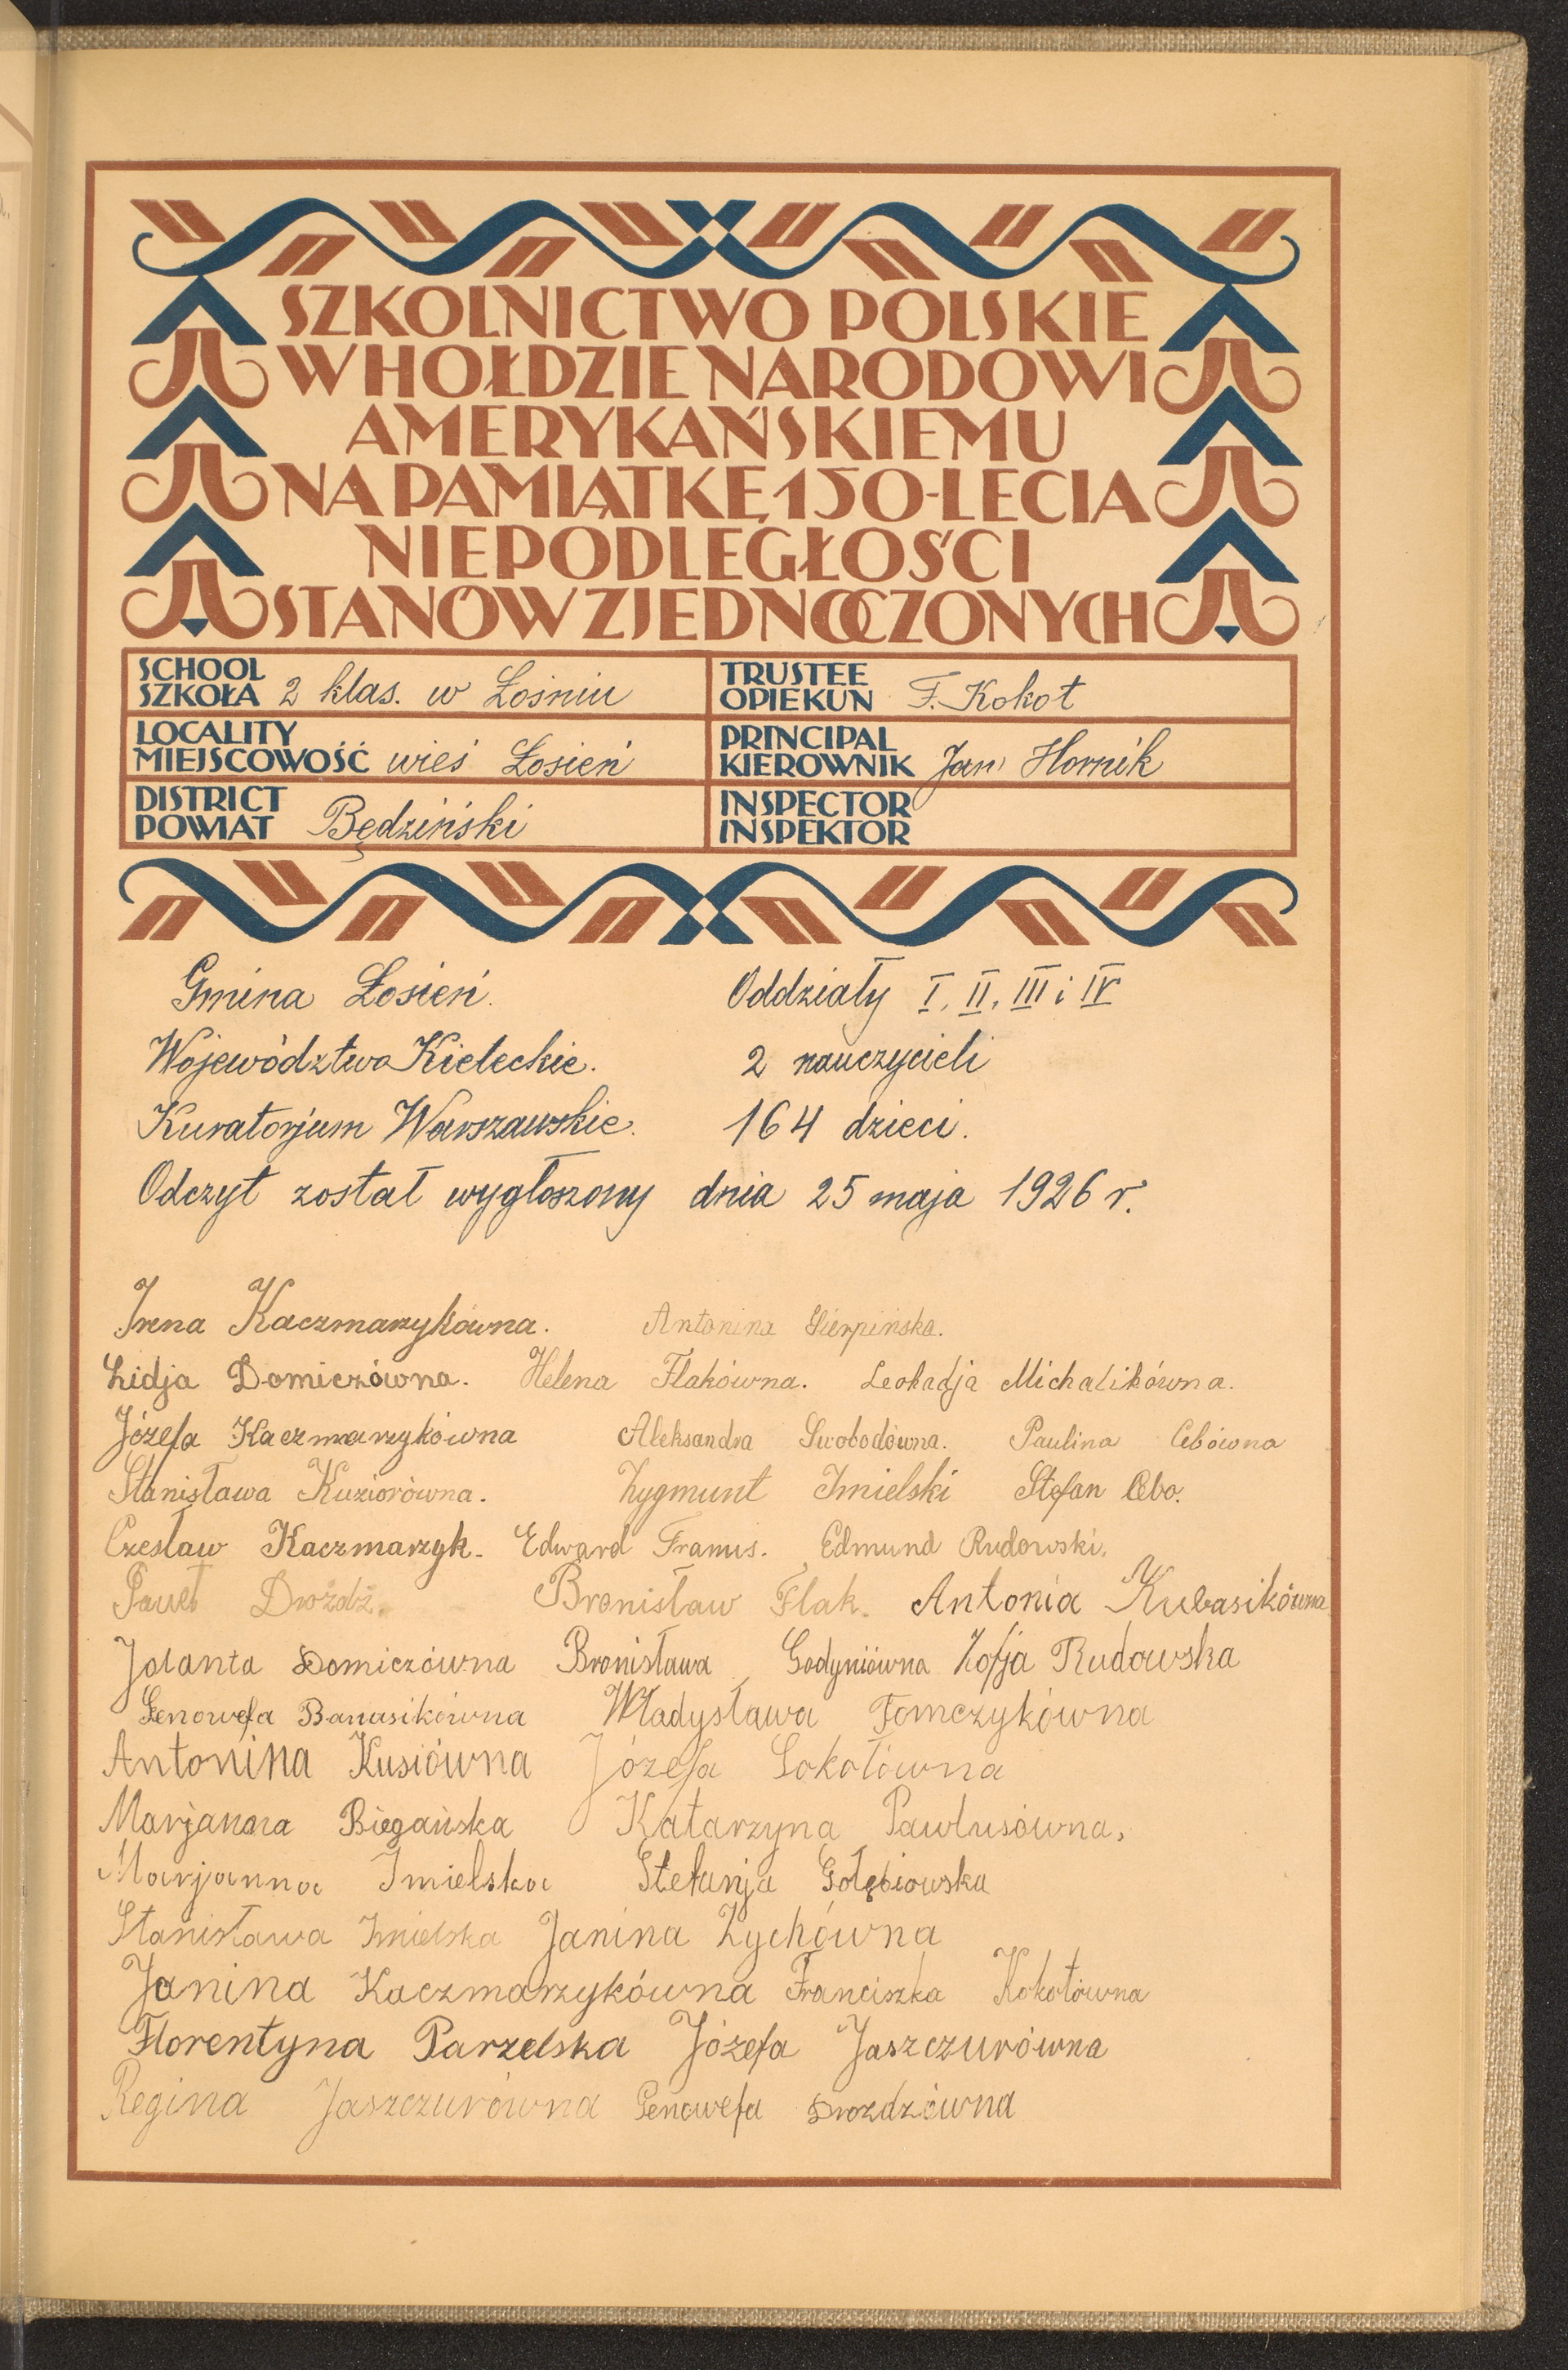 SZKOLNICTWO POLSKIE
W HOŁDZIE NARODOWI
AMERYKAŃSKIEMU
NA PAMIĄTKĘ 150-LECIA
NIEPODLEGŁOŚCI
STANÓW ZJEDNOCZONYCH
SCHOOL
SZKOŁA 2 klas. w Łośniu
TRUSTEE
OPIEKUN F. Kokot
LOCALITY
MIEJSCOWOŚĆ wieś Łosień
PRINCIPAL
KIEROWNIK Jan Hornik
DISTRICT
POWIAT Będziński
INSPECTOR
INSPEKTOR
Gmina Łosień. Oddziały I, II, III i IV
Województwo Kieleckie. 2 nauczycieli
Kuratorjum Warszawskie. 164 dzieci.
Odczyt został wygłoszony dnia 25 maja 1926 r.
Irena Kaczmarzykówna. Antonina Sierpińska.
Lidja Domiczówna. Helena Flakówna. Leokadja Michalikówna.
Józefa Kaczmarzykówna Aleksandra Swobodówna. Paulina Cebówna
Stanisława Kuziorówna. Zygmunt Imielski Stefan Cebo.
Czesław Kaczmarzyk. Edward Framus. Edmund Rudowski.
Paweł Drożdż. Bronisław Flak. Antonia Kubasikówna
Jolanta Domiczówna Bronisława Godyniówna Zofja Rudowska
Genowefa Banasikówna Władysława Tomczykówna
Antonina Kusiówna Józefa Sokołówna
Marjanna Biegańska Katarzyna Pawlusówna,
Marjanna Imielska Stefanja Gołębiowska
Stanisława Imielska Janina Zychówna
Janina Kaczmarzykówna Franciszka Kokotówna
Florentyna Parzelska Józefa Jaszczurówna
Regina Jaszczurówna Genowefa Drozdzówna